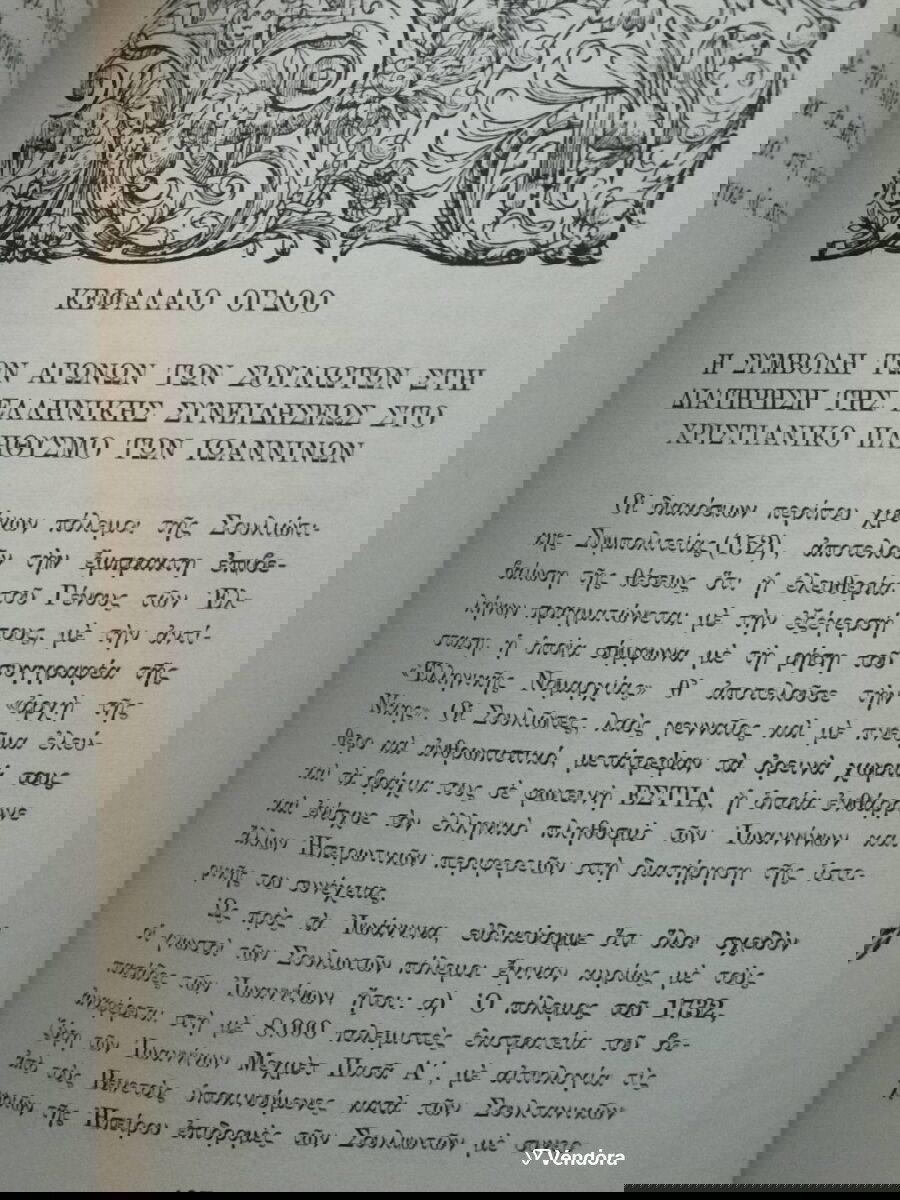 ΚΕΦΑΛΑΙΟ ΟΓΔΟΟ
Η ΣΥΜΒΟΛΗ ΤΩΝ ΑΓΩΝΩΝ ΤΩΝ ΣΟΥΛΙΩΤΩΝ ΣΤΗ
ΔΙΑΤΗΡΗΣΗ ΤΗΣ ΕΛΛΗΝΙΚΗΣ ΣΥΝΕΙΔΗΣΕΩΣ ΣΤΟ
ΧΡΙΣΤΙΑΝΙΚΟ ΠΛΗΘΥΣΜΟ ΤΩΝ ΙΩΑΝΝΙΝΩΝ
Οἱ διακόσιων περίπου χρόνων πόλεμοι τῆς Σουλιώτι-
κης Συμπολιτείας (152), ἀποτελοῦν τὴν ἔμπρακτη ἐπιβε-
βαίωση τῆς θέσεως ὅτι ἡ ἐλευθερία τοῦ Γένους τῶν Ἑλ-
λήνων πραγματώνεται μὲ τὴν ἐξέγερσή τους, μὲ τὴν ἀντί-
σταση, ἡ ὁποία σύμφωνα μὲ τὴ ρήση τοῦ συγγραφέα τῆς
«Ἑλληνικῆς Νομαρχίας» θ' ἀποτελοῦσε τὴν «ἀρχὴ τῆς
Νίκης». Οἱ Σουλιῶτες, λαὸς γενναῖος καὶ μὲ πνεῦμα ἐλεύ-
θερο καὶ ἀνθρωπιστικό, μετάτρεψαν τὰ ὀρεινὰ χωριά τους
καὶ τὰ βράχια τους σὲ φωτεινὴ ΕΣΤΙΑ, ἡ ὁποία ἐνθάρρυνε
καὶ ἐνίσχυε τὸν ἑλληνικὸ πληθυσμὸ τῶν Ἰωαννίνων καὶ
ἄλλων Ἠπειρωτικῶν περιφερειῶν στὴ διατήρηση τῆς ἱστο-
ρικῆς του συνέχειας.
Ὡς πρὸς τὰ Ἰωάννινα, εἰδικεύουμε ὅτι ὅλοι σχεδὸν
οἱ γνωστοὶ τῶν Σουλιωτῶν πόλεμοι ἔγιναν κυρίως μὲ τοὺς
πασάδες τῶν Ἰωαννίνων ἤτοι: α) Ὁ πόλεμος τοῦ 1732,
ἀναφέρεται στὴ μὲ 8.000 πολεμιστὲς ἐκστρατεία τοῦ βε-
ζύρη τῶν Ἰωαννίνων Μεχμὲτ Πασᾶ Α΄, μὲ αἰτιολογία τὶς
ἀπὸ τοὺς Βενετοὺς ὑποκινούμενες κατὰ τῶν Σουλτανικῶν
τῆς Ἠπείρου ἐπιδρομὲς τῶν Σουλιωτῶν μὲ
Vendora